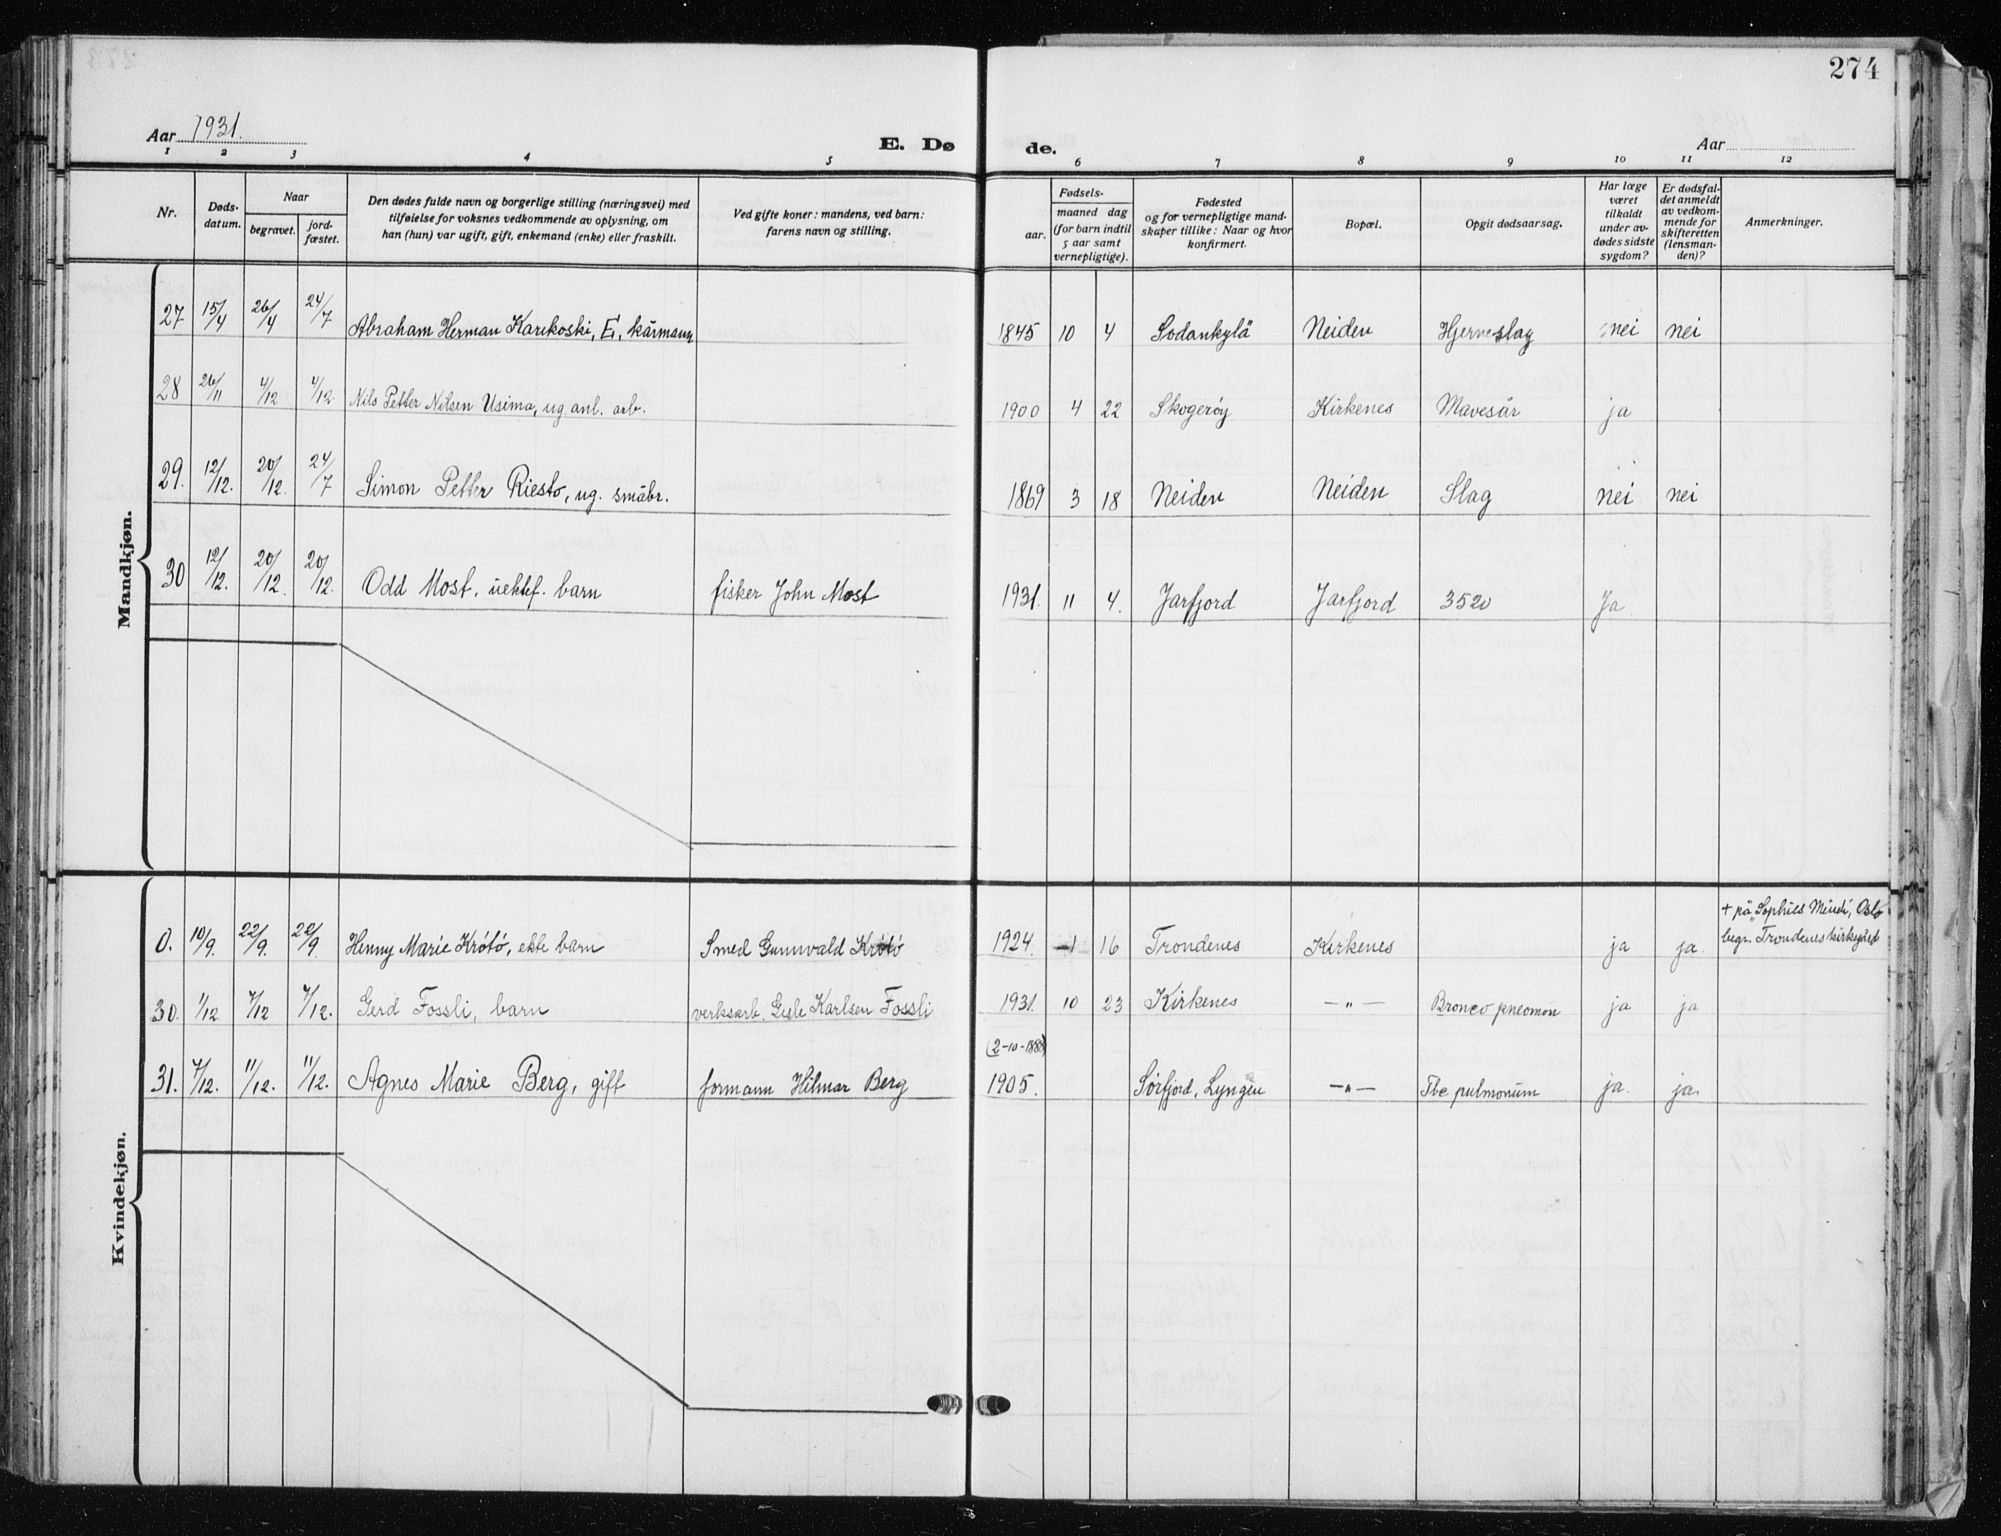 274
Aar 1931.
E. Dø
de.
Aar
1 2 3 4 5 6 7 8 9 10 11 12
Nr.
Døds-
datum.
Naar
begravet.
jord-
fæstet.
Den dødes fulde navn og borgerlige stilling (næringsvei) med
tilføielse for voksnes vedkommende av oplysning, om
han (hun) var ugift, gift, enkemand (enke) eller fraskilt.
Ved gifte koner: mandens, ved barn:
farens navn og stilling.
Fødsels-
aar.
maaned dag
(for barn indtil
5 aar samt
vernepligtige).
Fødested
og for vernepligtige mand-
skaper tillike: Naar og hvor
konfirmert.
Bopæl.
Opgit dødsaarsag.
Har læge
været
tilkaldt
under av-
dødes sidste
sygdom?
Er dødsfal-
det anmeldt
av vedkom-
mende for
skifteretten
(lensman-
den)?
Anmerkninger.
Mandkjøn.
27 15/4 26/4 24/7 Abraham Herman Karikoski, E., kårmann 1845 10 4 Sodankylä Neiden Hjerneslag nei nei
28 26/11 4/12 4/12. Nils Petter Nilsen Usima, ug. anl. arb. 1900 4 22 Skogerøy Kirkenes Mavesår ja
29. 12/12. 20/12. 24/7 Simon Petter Riesto, ug. småbr. 1869 3 18 Neiden Neiden Slag nei nei
30 12/12. 20/12. 20/12. Odd Most, uektef. barn fisker John Most 1931. 11 4. Jarfjord Jarfjord 3520 Ja
Kvindekjøn.
+ på "Sophies Minde", Oslo
0. 10/9. 22/9 22/9. Henny Marie Krötö, ekte barn Smed Gunnvald Krötö 1924 1 16 Trondenes Kirkenes ja ja. begr. Trondenes kirkegård
30. 1/12. 7/12 7/12. Gerd Fossli, barn verksarb. Karlsen Fossli 1931. 10 23 Kirkenes —"— Bronco pneomon ja ja
(2-10-1888)
31. 7/12. 11/12. 11/12. Agnes Marie Berg, gift formann Hilmar Berg 1905. Sørfjord, Lyngen —"— Tbc pulmonum ja. ja.